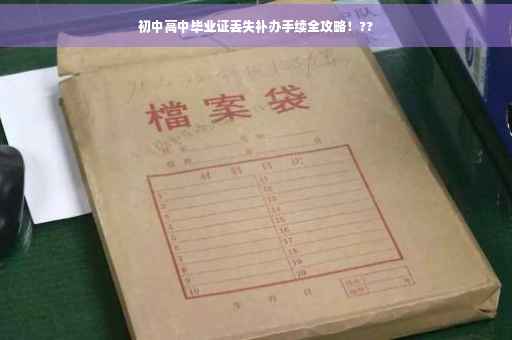 初中高中毕业证丢失补办手续全攻略！??
檔案袋
材料目次
1 11
2 12
3 13
4 14
5 15
6 16
7 17
8 18
9 19
10 20
年 月 日